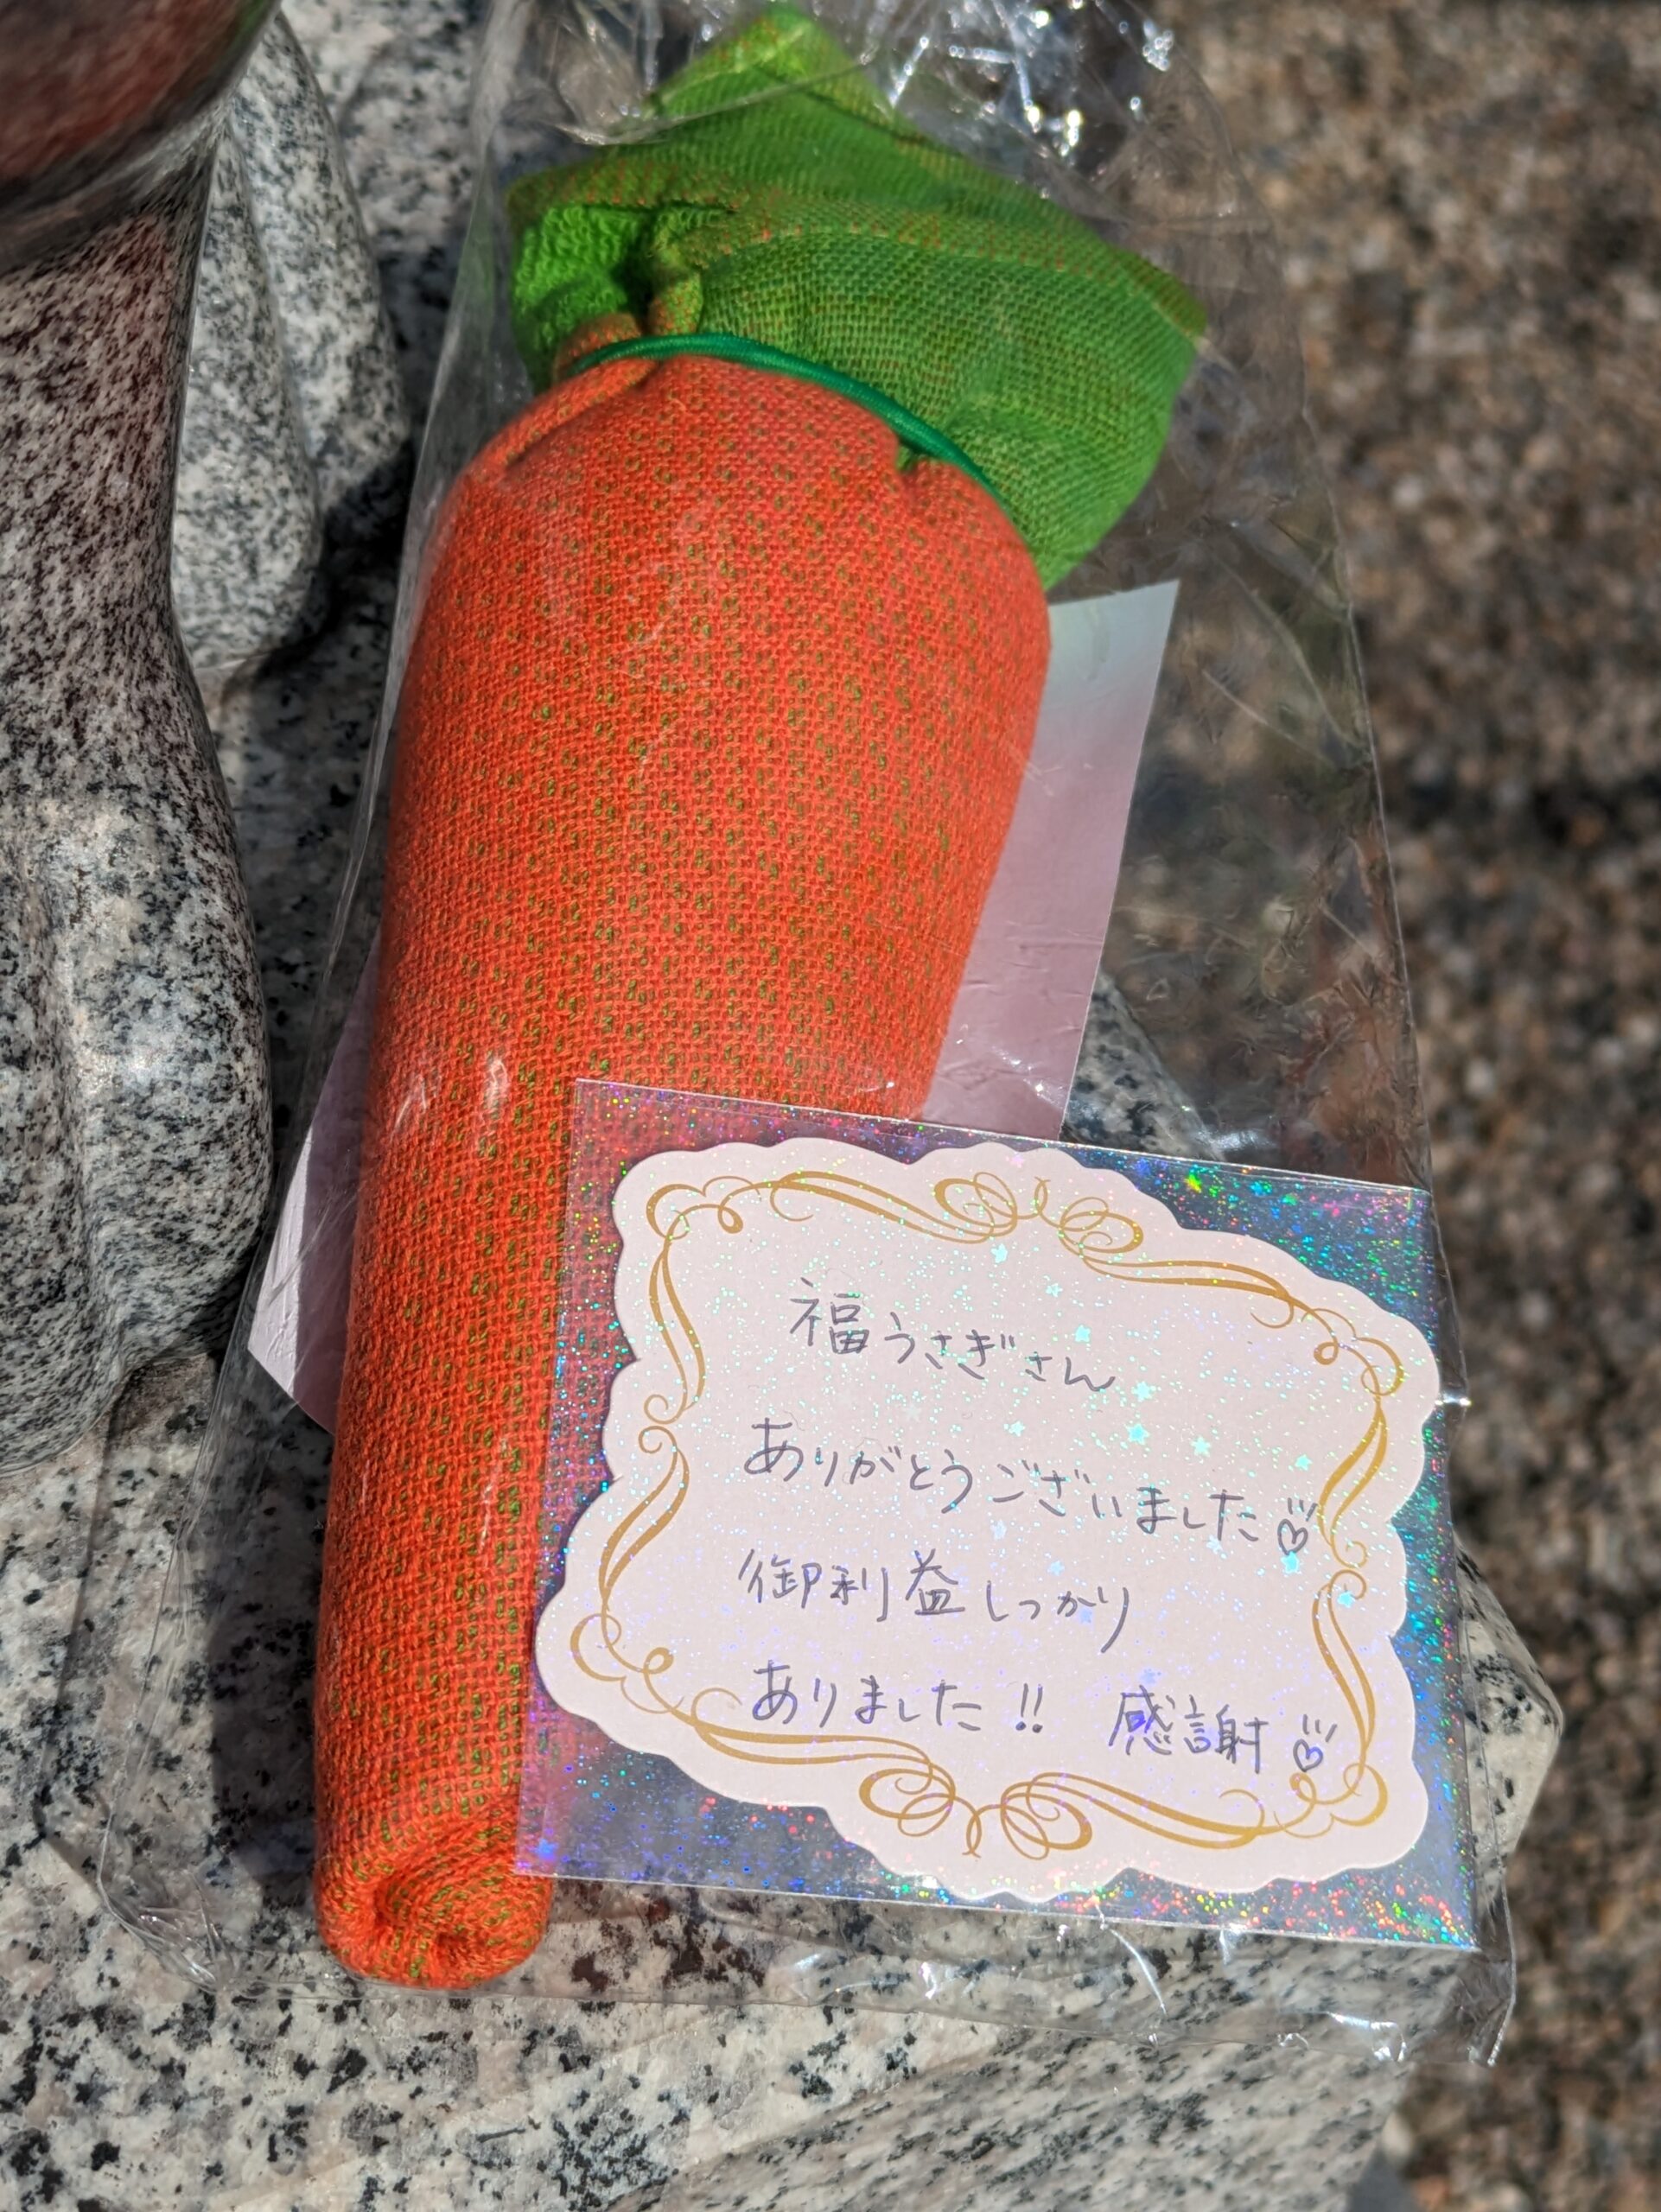 福うさぎさん
ありがとうございました♡
御利益しっかり
ありました!! 感謝♡